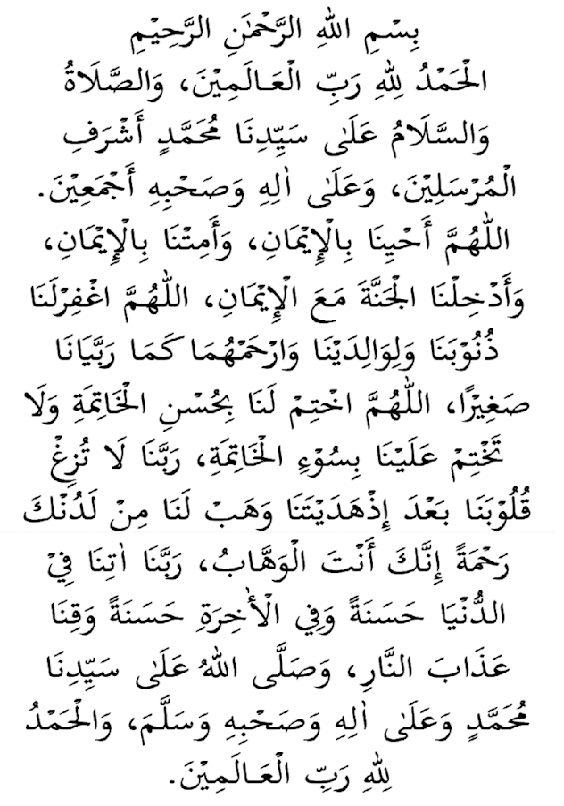 بِسْمِ اللهِ الرَّحْمٰنِ الرَّحِيْمِ
الْحَمْدُ لِلهِ رَبِّ الْعَالَمِيْنَ، وَالصَّلَاةُ
وَالسَّلَامُ عَلَى سَيِّدِنَا مُحَمَّدٍ أَشْرَفِ
الْمُرْسَلِيْنَ، وَعَلَى اٰلِهِ وَصَحْبِهِ أَجْمَعِيْنَ.
اللّٰهُمَّ أَحْيِنَا بِالْإِيْمَانِ، وَأَمِتْنَا بِالْإِيْمَانِ،
وَأَدْخِلْنَا الْجَنَّةَ مَعَ الْإِيْمَانِ، اللّٰهُمَّ اغْفِرْلَنَا
ذُنُوْبَنَا وَلِوَالِدَيْنَا وَارْحَمْهُمَا كَمَا رَبَّيَانَا
صَغِيْرًا، اللّٰهُمَّ اخْتِمْ لَنَا بِحُسْنِ الْخَاتِمَةِ وَلَا
تَخْتِمْ عَلَيْنَا بِسُوْءِ الْخَاتِمَةِ، رَبَّنَا لَا تُزِغْ
قُلُوْبَنَا بَعْدَ إِذْهَدَيْتَنَا وَهَبْ لَنَا مِنْ لَدُنْكَ
رَحْمَةً إِنَّكَ أَنْتَ الْوَهَّابُ، رَبَّنَا اٰتِنَا فِيْ
الدُّنْيَا حَسَنَةً وَفِي الْأٰخِرَةِ حَسَنَةً وَقِنَا
عَذَابَ النَّارِ، وَصَلَّى اللهُ عَلَى سَيِّدِنَا
مُحَمَّدٍ وَعَلَى اٰلِهِ وَصَحْبِهِ وَسَلَّمَ، وَالْحَمْدُ
لِلهِ رَبِّ الْعَالَمِيْنَ.